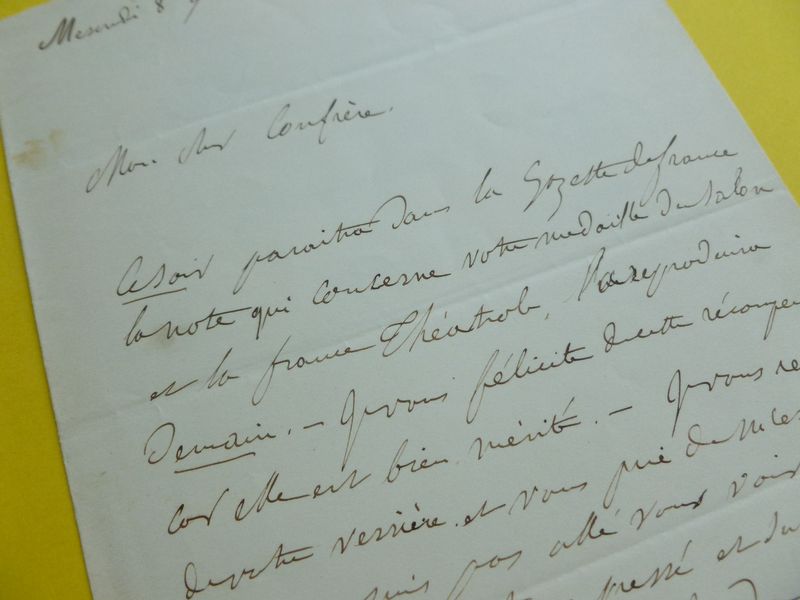 Mercredi 8
Mon cher Confrère.
Ce soir paraitra dans la Gazette de france
la note qui concerne votre medaille du Salon
et la france Théâtrale, reproduira
Demain. – Je vous félicite de cette récompen
car elle est bien mérité. – Je vous re
de votre verrière. et vous prie de
suis pas allé vous voir
pressé et du